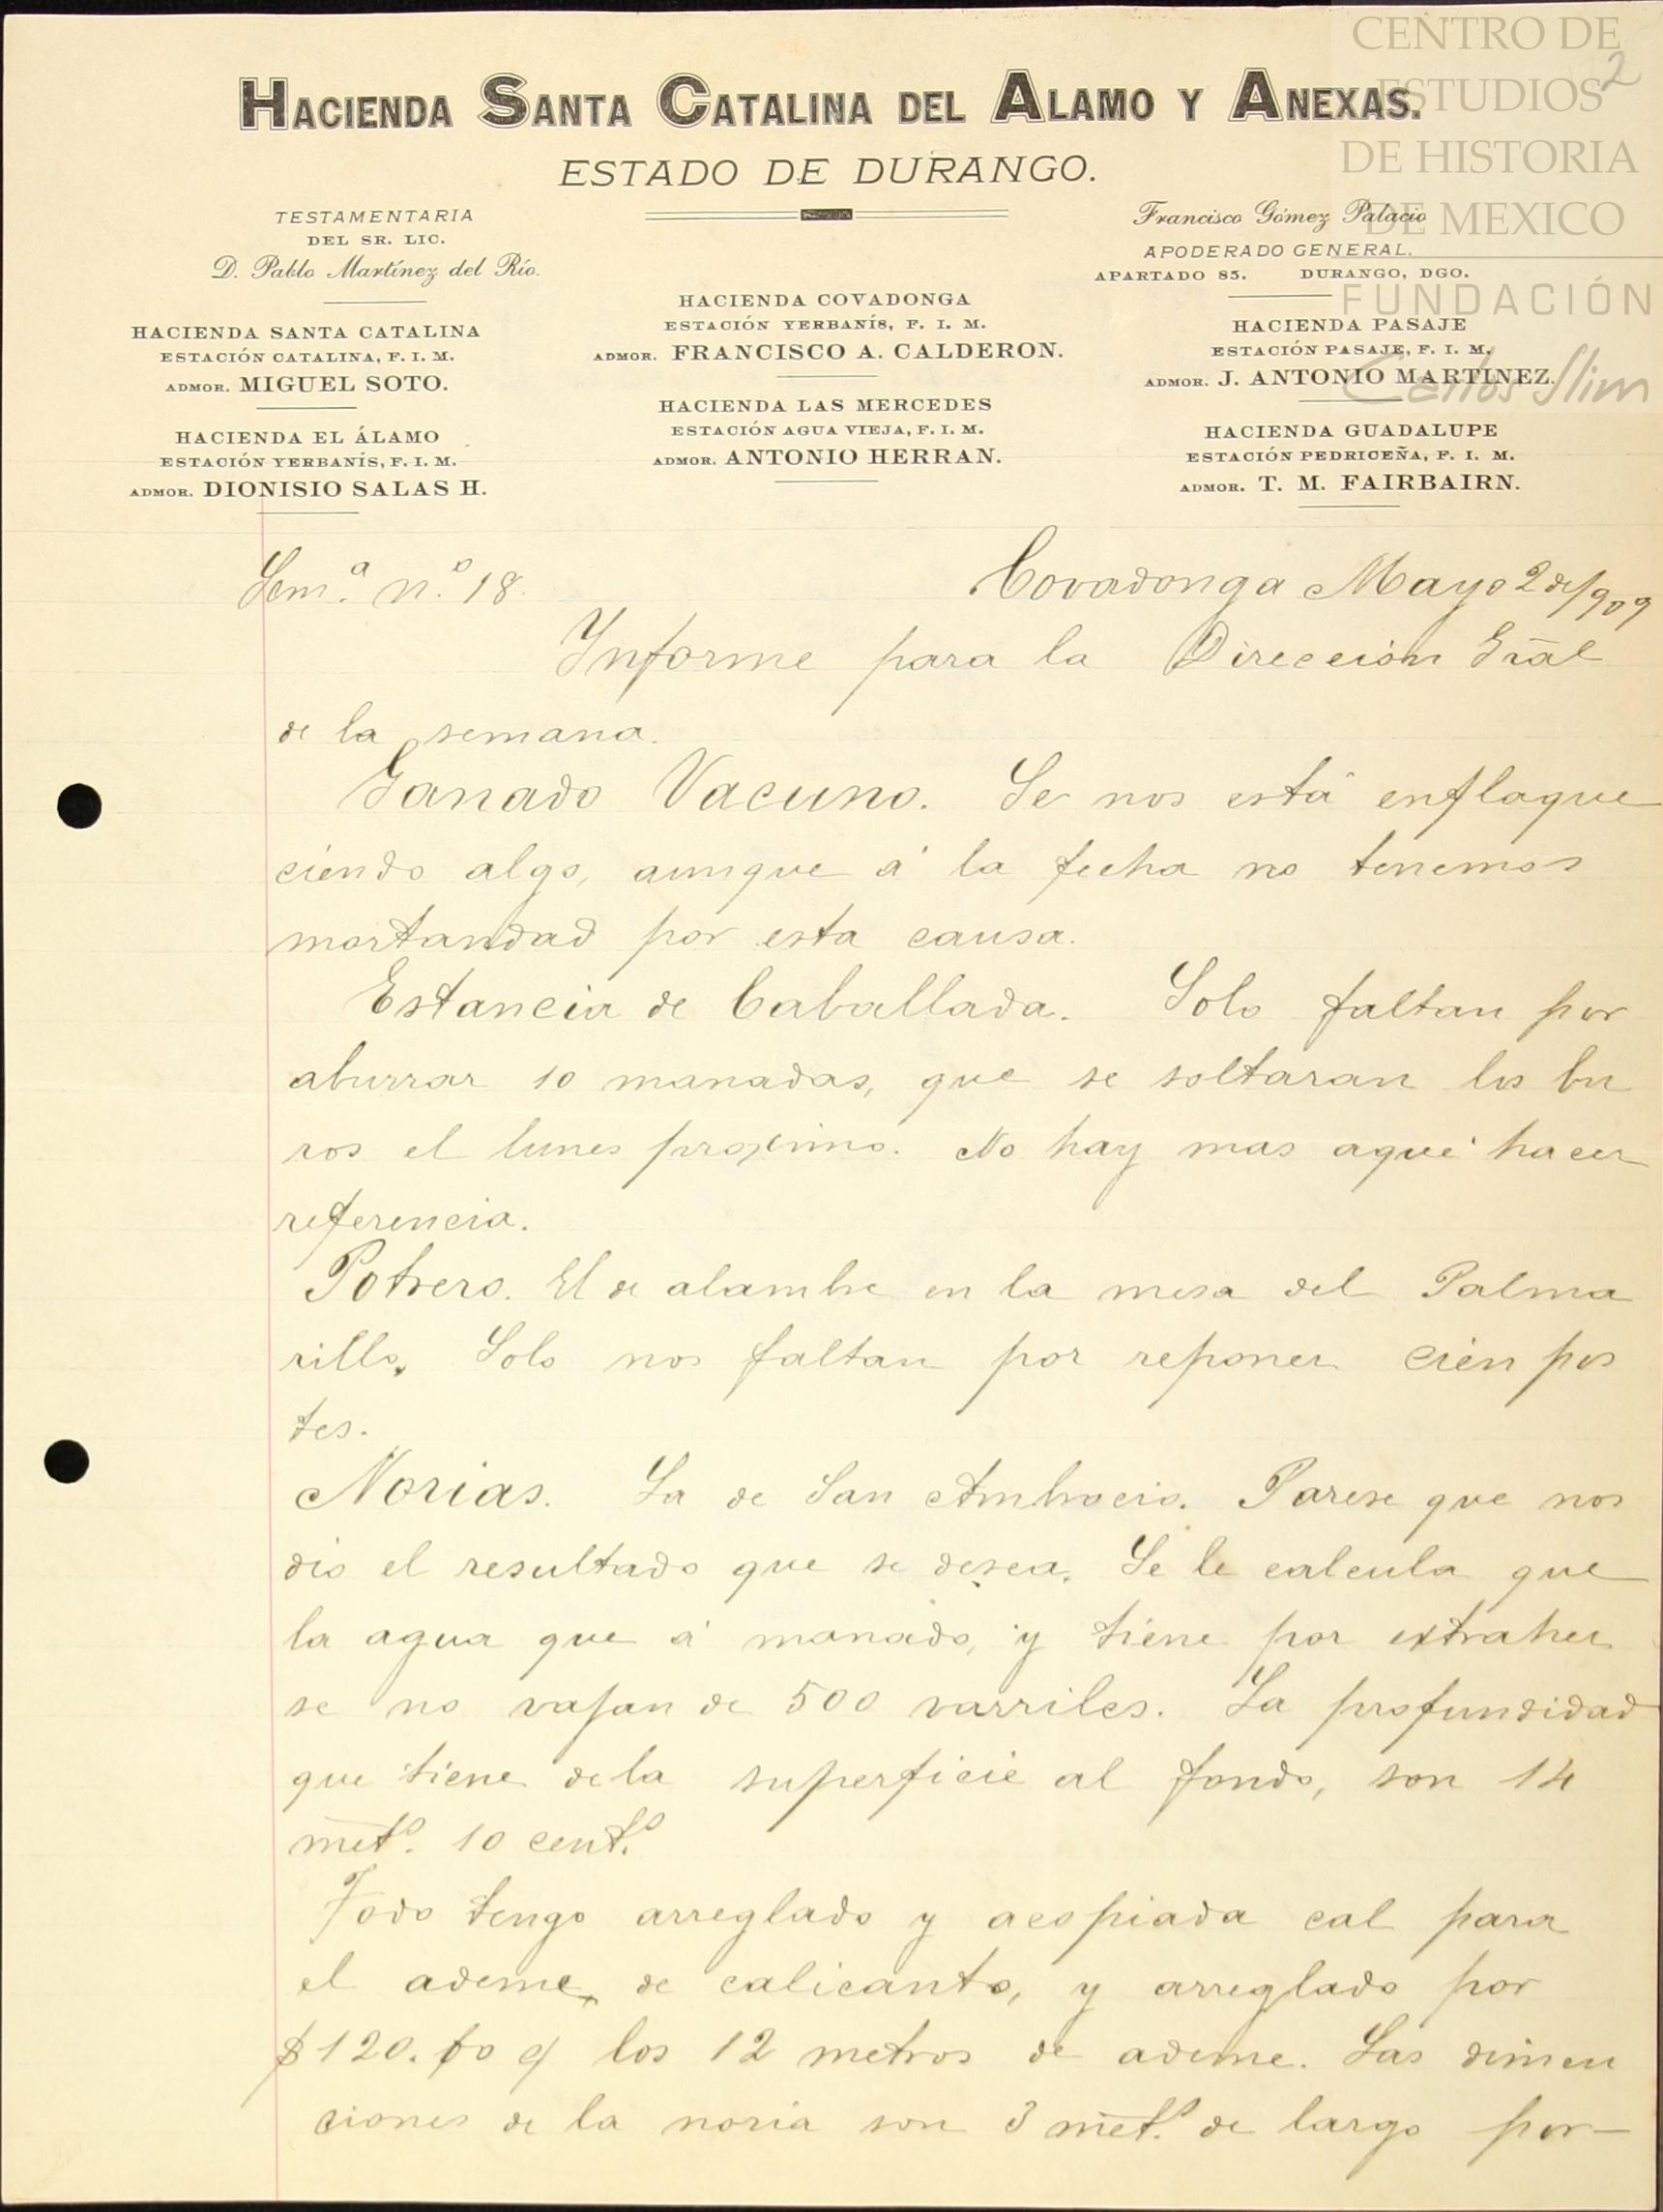 CENTRO DE
ESTUDIOS
DE HISTORIA
DE MEXICO
FUNDACIÓN
Carlos Slim
2
HACIENDA SANTA CATALINA DEL ALAMO Y ANEXAS.
ESTADO DE DURANGO.
TESTAMENTARIA
DEL SR. LIC.
D. Pablo Martínez del Río.
HACIENDA SANTA CATALINA
ESTACIÓN CATALINA, F. I. M.
ADMOR. MIGUEL SOTO.
HACIENDA EL ÁLAMO
ESTACIÓN YERBANÍS, F. I. M.
ADMOR. DIONISIO SALAS H.
HACIENDA COVADONGA
ESTACIÓN YERBANÍS, F. I. M.
ADMOR. FRANCISCO A. CALDERON.
HACIENDA LAS MERCEDES
ESTACIÓN AGUA VIEJA, F. I. M.
ADMOR. ANTONIO HERRAN.
Francisco Gómez Palacio
APODERADO GENERAL.
APARTADO 85. DURANGO, DGO.
HACIENDA PASAJE
ESTACIÓN PASAJE, F. I. M.
ADMOR. J. ANTONIO MARTINEZ.
HACIENDA GUADALUPE
ESTACIÓN PEDRICEÑA, F. I. M.
ADMOR. T. M. FAIRBAIRN.
Sem.ª n.º 18. Covadonga Mayo 2 de/909
Informe para la Direccion Gral
de la semana.
Ganado Vacuno. Se nos está enflaque
ciendo algo, aunque á la fecha no tenemos
mortandad por esta causa.
Estancia de Caballada. Solo faltan por
aburrar 10 manadas, que se soltaran los bu
ros el lunes proximo. No hay mas aqui hacer
referencia.
Potrero. El de alambre en la mesa del Palma
rillo. Solo nos faltan por reponer cien pos
tes.
Norias. La de San Ambrocio. Parese que nos
dio el resultado que se desea. Se le calcula que
la agua que á manado, y tiene por extraher
se no vajan de 500 varriles. La profundidad
que tiene de la superficie al fondo, son 14
met.º 10 cent.º
Todo tengo arreglado y acopiada cal para
el ademe de calicanto, y arreglado por
$120.00 c/ los 12 metros de ademe. Las dimen
ciones de la noria son 3 met.º de largo por—